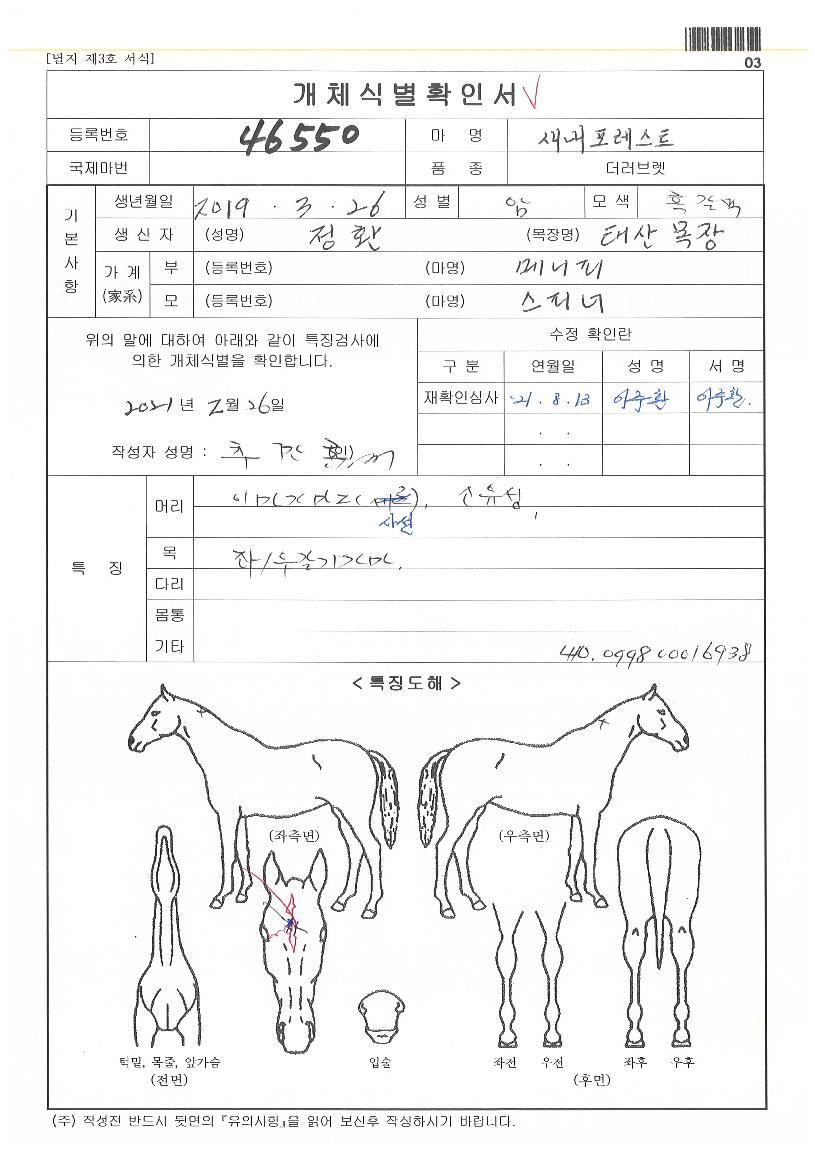 [별지 제3호 서식]
03
개체식별확인서
등록번호 46550 마 명 새내포레스트
국제마번 품 종 더러브렛
기본사항
생년월일 2019 . 3 . 26 성 별 암 모 색 흑갈색
생 산 자 (성명) 정환 (목장명) 태산목장
가 계 (家系)
부 (등록번호) (마명) 메니피
모 (등록번호) (마명) 스피너
위의 말에 대하여 아래와 같이 특징검사에
의한 개체식별을 확인합니다.
2021년 2월 26일
작성자 성명 :
수정 확인란
구 분 연월일 성 명 서 명
재확인심사 '21 . 8 . 13
. .
. .
특 징
머리
사선
목
다리
몸통
기타 410.099800016938
< 특징도해 >
(좌측면) (우측면)
턱밑, 목줄, 앞가슴
(전면)
입술
좌전 우전 좌후 우후
(후면)
(주) 작성전 반드시 뒷면의 『유의사항』을 읽어 보신후 작성하시기 바랍니다.